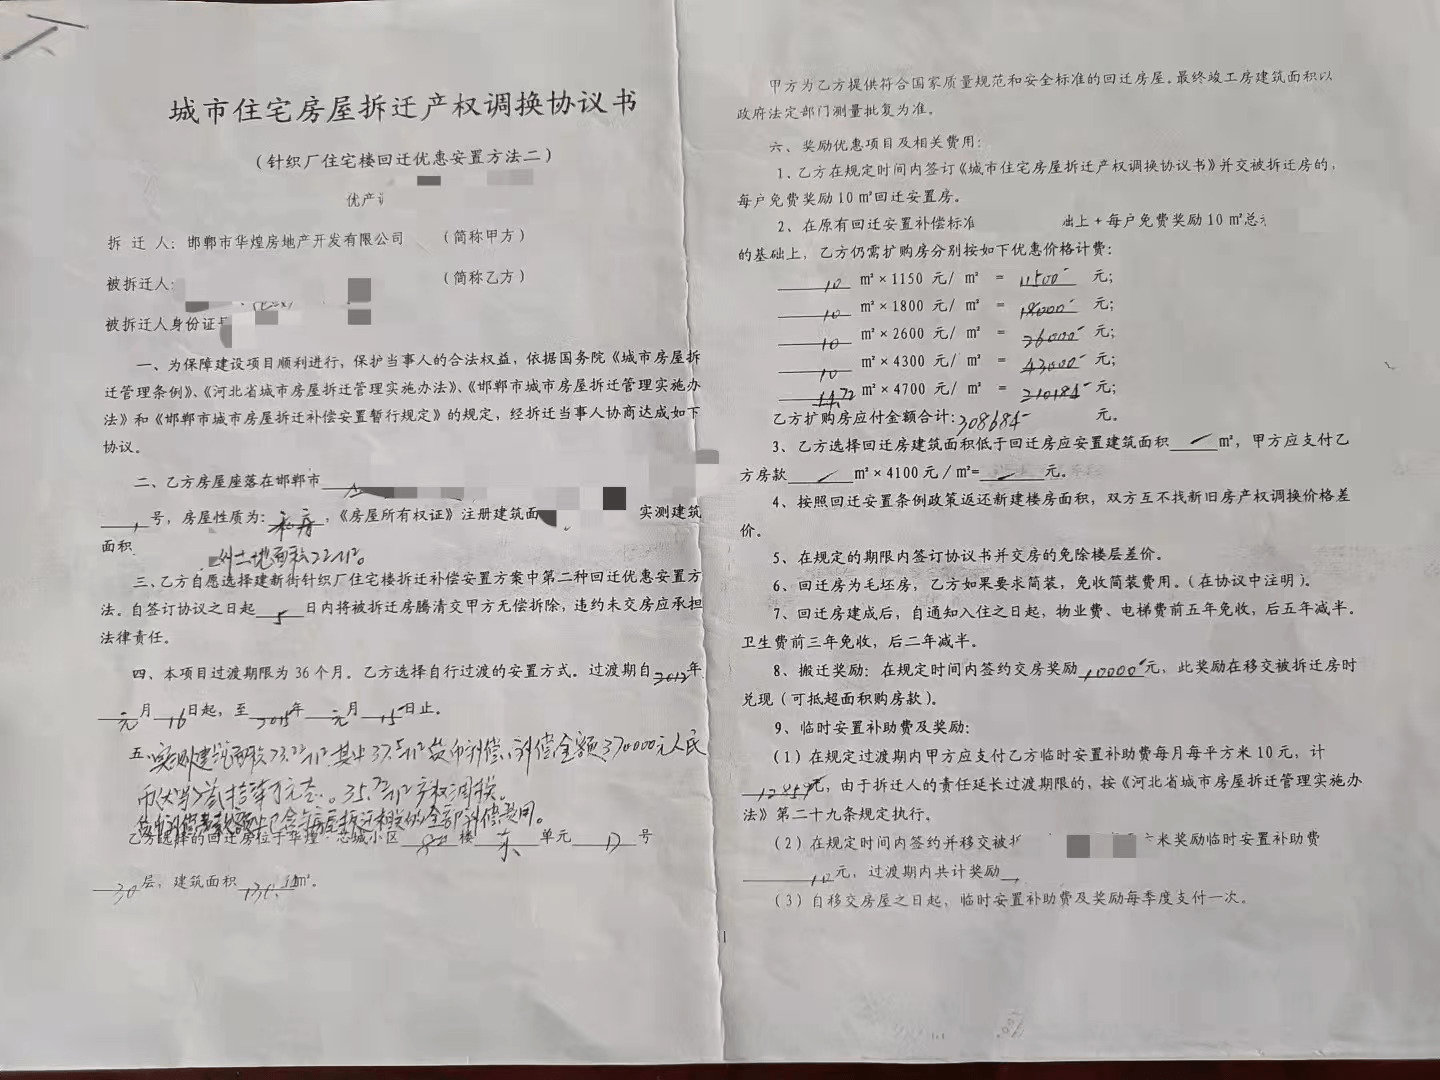 城市住宅房屋拆迁产权调换协议书
（针织厂住宅楼回迁优惠安置方法二）
优产
拆 迁 人：邯郸市华煌房地产开发有限公司 （简称甲方）
被拆迁人： （简称乙方）
被拆迁人身份证
一、为保障建设项目顺利进行，保护当事人的合法权益，依据国务院《城市房屋拆
迁管理条例》、《河北省城市房屋拆迁管理实施办法》、《邯郸市城市房屋拆迁管理实施办
法》和《邯郸市城市房屋拆迁补偿安置暂行规定》的规定，经拆迁当事人协商达成如下
协议。
二、乙方房屋座落在邯郸市
号，房屋性质为：私产，《房屋所有权证》注册建筑面 实测建筑
面积
三、乙方自愿选择建新街针织厂住宅楼拆迁补偿安置方案中第二种回迁优惠安置方
法。自签订协议之日起 5 日内将被拆迁房腾清交甲方无偿拆除，违约未交房应承担
法律责任。
四、本项目过渡期限为36个月。乙方选择自行过渡的安置方式。过渡期自2012年
元月16日起，至2015年元月15日止。
五、实测建筑面积73.22m²其中37.5m²货币补偿，补偿金额370000元人民
币（大写）叁拾柒万元整。35.72m²产权调换。
乙方选择的回迁房位于华煌·芯城小区 楼 东 单元 号
30层，建筑面积 m²。
甲方为乙方提供符合国家质量规范和安全标准的回迁房屋。最终竣工房建筑面积以
政府法定部门测量批复为准。
六、奖励优惠项目及相关费用：
1、乙方在规定时间内签订《城市住宅房屋拆迁产权调换协议书》并交被拆迁房的，
每户免费奖励10㎡回迁安置房。
2、在原有回迁安置补偿标准 础上＋每户免费奖励10㎡总
的基础上，乙方仍需扩购房分别按如下优惠价格计费：
10 ㎡×1150 元/ ㎡ = 11500 元；
10 ㎡×1800 元/ ㎡ = 18000 元；
10 ㎡×2600 元/ ㎡ = 26000 元；
10 ㎡×4300 元/ ㎡ = 43000 元；
44.72 ㎡×4700 元/ ㎡ = 210184 元；
乙方扩购房应付金额合计：308684 元。
3、乙方选择回迁房建筑面积低于回迁房应安置建筑面积 ㎡，甲方应支付乙
方房款 ㎡×4100元／㎡= 元。
4、按照回迁安置条例政策返还新建楼房面积，双方互不找新旧房产权调换价格差
价。
5、在规定的期限内签订协议书并交房的免除楼层差价。
6、回迁房为毛坯房，乙方如果要求简装，免收简装费用。（在协议中注明）。
7、回迁房建成后，自通知入住之日起，物业费、电梯费前五年免收，后五年减半。
卫生费前三年免收，后二年减半。
8、搬迁奖励：在规定时间内签约交房奖励 10000 元，此奖励在移交被拆迁房时
兑现（可抵超面积购房款）。
9、临时安置补助费及奖励：
（1）在规定过渡期内甲方应支付乙方临时安置补助费每月每平方米10元，计
12859元，由于拆迁人的责任延长过渡期限的，按《河北省城市房屋拆迁管理实施办
法》第二十九条规定执行。
（2）在规定时间内签约并移交被拆 米奖励临时安置补助费
10元，过渡期内共计奖励
（3）自移交房屋之日起，临时安置补助费及奖励每季度支付一次。
1